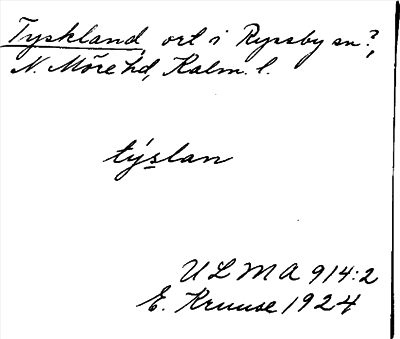 Tyskland, ort i Ryssby sn?,
N. Möre hd, Kalm. l.
týslan
ULMA 914:2
E. Kruuse 1924